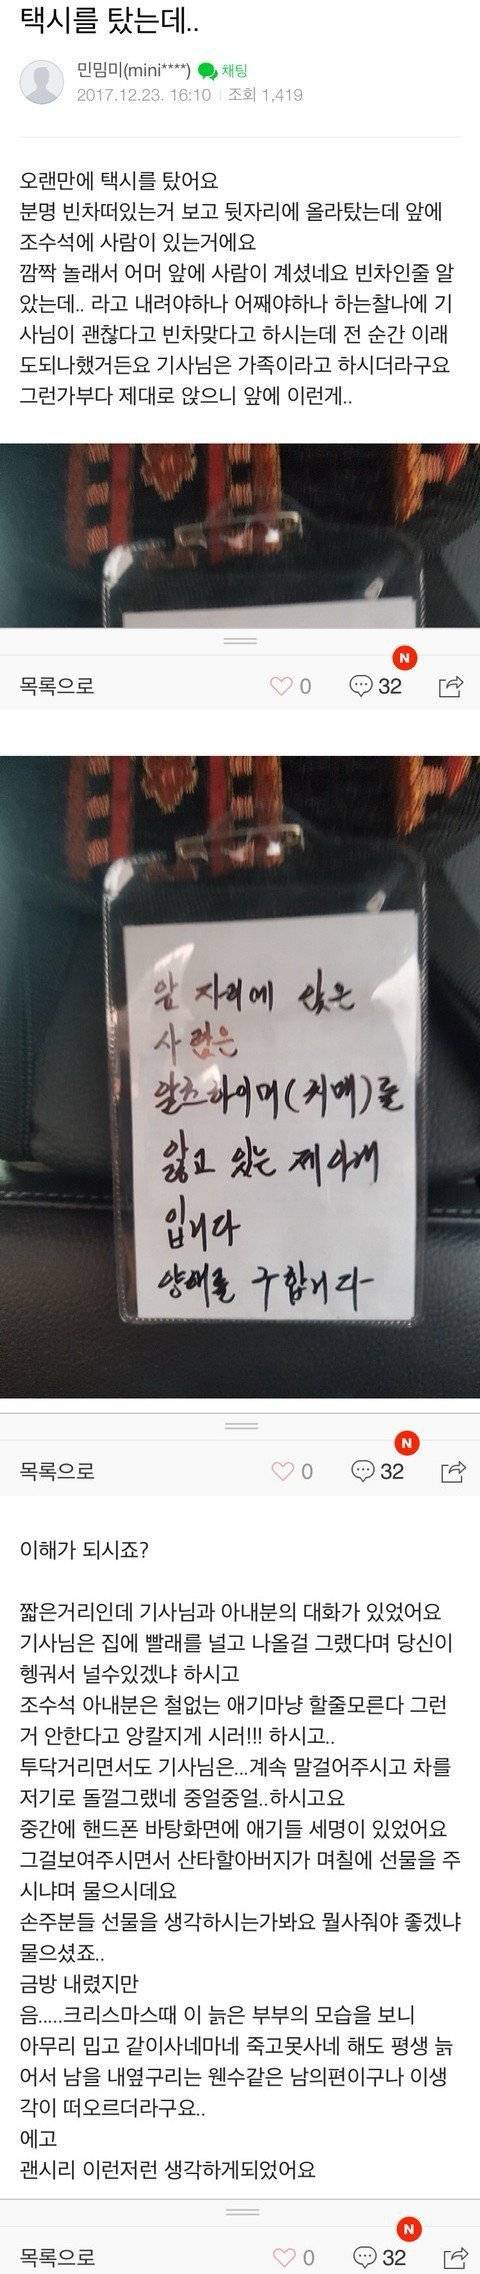 택시를 탔는데..
민밈미(mini****) 채팅
2017.12.23. 16:10 조회 1,419
오랜만에 택시를 탔어요
분명 빈차떠있는거 보고 뒷자리에 올라탔는데 앞에
조수석에 사람이 있는거에요
깜짝 놀래서 어머 앞에 사람이 계셨네요 빈차인줄 알
았는데.. 라고 내려야하나 어째야하나 하는찰나에 기
사님이 괜찮다고 빈차맞다고 하시는데 전 순간 이래
도되나했거든요 기사님은 가족이라고 하시더라구요
그런가부다 제대로 앉으니 앞에 이런게..
목록으로 0 32 N
앞 자리에 앉은
사람은
알츠하이머(치매)를
앓고 있는 제 아내
입니다
양해를 구합니다
목록으로 0 32 N
이해가 되시죠?
짧은거리인데 기사님과 아내분의 대화가 있었어요
기사님은 집에 빨래를 널고 나올걸 그랬다며 당신이
헹궈서 널수있겠냐 하시고
조수석 아내분은 철없는 애기마냥 할줄모른다 그런
거 안한다고 앙칼지게 시러!!! 하시고..
투닥거리면서도 기사님은...계속 말걸어주시고 차를
저기로 돌껄그랬네 중얼중얼..하시고요
중간에 핸드폰 바탕화면에 애기들 세명이 있었어요
그걸보여주시면서 산타할아버지가 며칠에 선물을 주
시냐며 물으시데요
손주분들 선물을 생각하시는가봐요 뭘사줘야 좋겠냐
물으셨죠..
금방 내렸지만
음.....크리스마스때 이 늙은 부부의 모습을 보니
아무리 밉고 같이사네마네 죽고못사네 해도 평생 늙
어서 남을 내옆구리는 웬수같은 남의편이구나 이생
각이 떠오르더라구요..
에고
괜시리 이런저런 생각하게되었어요
목록으로 0 32 N